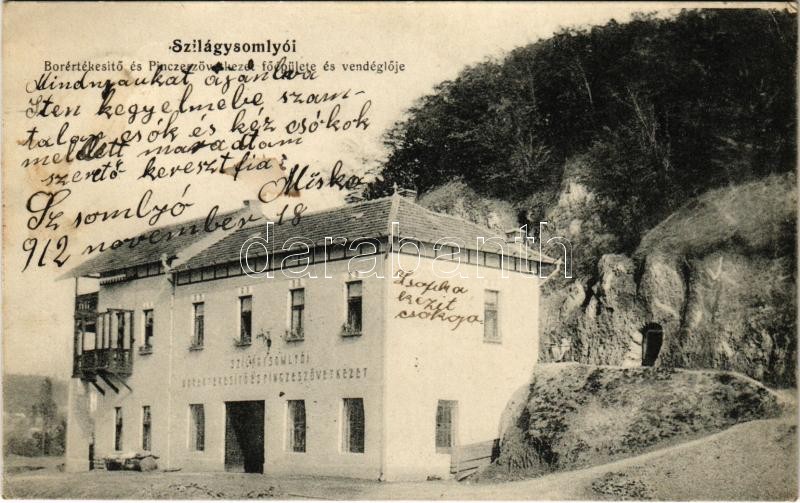 Szilágysomlyói
Borértékesitő és Pinczeszövetkezet főépülete és vendéglője
Mindnyaukat ajánlva
Isten kegyelmébe szám-
talan csók és kéz csókok
mellett maradtam
szerető keresztfia:
Miska
Sz somlyó
912 november 18
darabanth
Zsofika
kezit
csókolja
SZILÁGYSOMLYÓI
BORÉRTÉKESITŐ ÉS PINCZESZÖVETKEZET